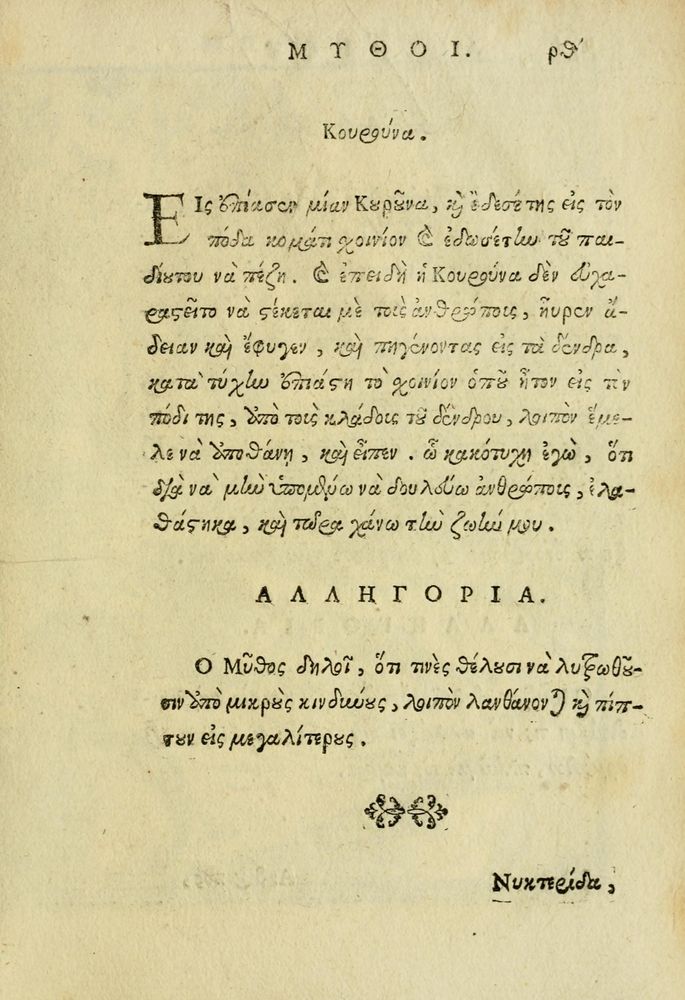 ΜΥΘΟΙ. ρθʹ
Κουρούνα.
ΕΙς ἐπίασεν μίαν Κυροῦνα, κỳ ἔδεσέ της εἰς τὸν
πόδα κομάτι χοινίον & ἐδωσέτην τοῦ παι-
δίουτου νὰ πέζῃ. & ἐπειδὴ ἡ Κουρούνα δὲν εὐχα-
ραστεῖτο νὰ στέκεται μὲ τοὺς ἀνθρώπους, ηὗρεν ἄ-
δειαν καὶ ἔφυγεν, καὶ πηγένοντας εἰς τὰ δένδρα,
κατὰ τύχην ἐπιάστη τὸ χοινίον ὁποῦ ἦτον εἰς τὴν
πόδι της, ἀπὸ τοὺς κλάδους τοῦ δένδρου, λοιπὸν ἔμε-
λε νὰ ἀποθάνῃ, καὶ εἶπεν. ὦ κακότυχη ἐγὼ, ὅτι
διὰ νὰ μὴν ὑπομένω νὰ δουλεύω ἀνθρώπους, ἐλα-
θάστηκα, καὶ τώρα χάνω τὴν ζωήν μου.
ΑΛΛΗΓΟΡΙΑ.
Ο Μῦθος δηλοῖ, ὅτι τινὲς θέλουσι νὰ λυτρωθοῦ-
σιν ἀπὸ μικροὺς κινδύνους, λοιπὸν λανθάνονται κỳ πίπ-
τουν εἰς μεγαλίτερους.
Νυκτερίδα,